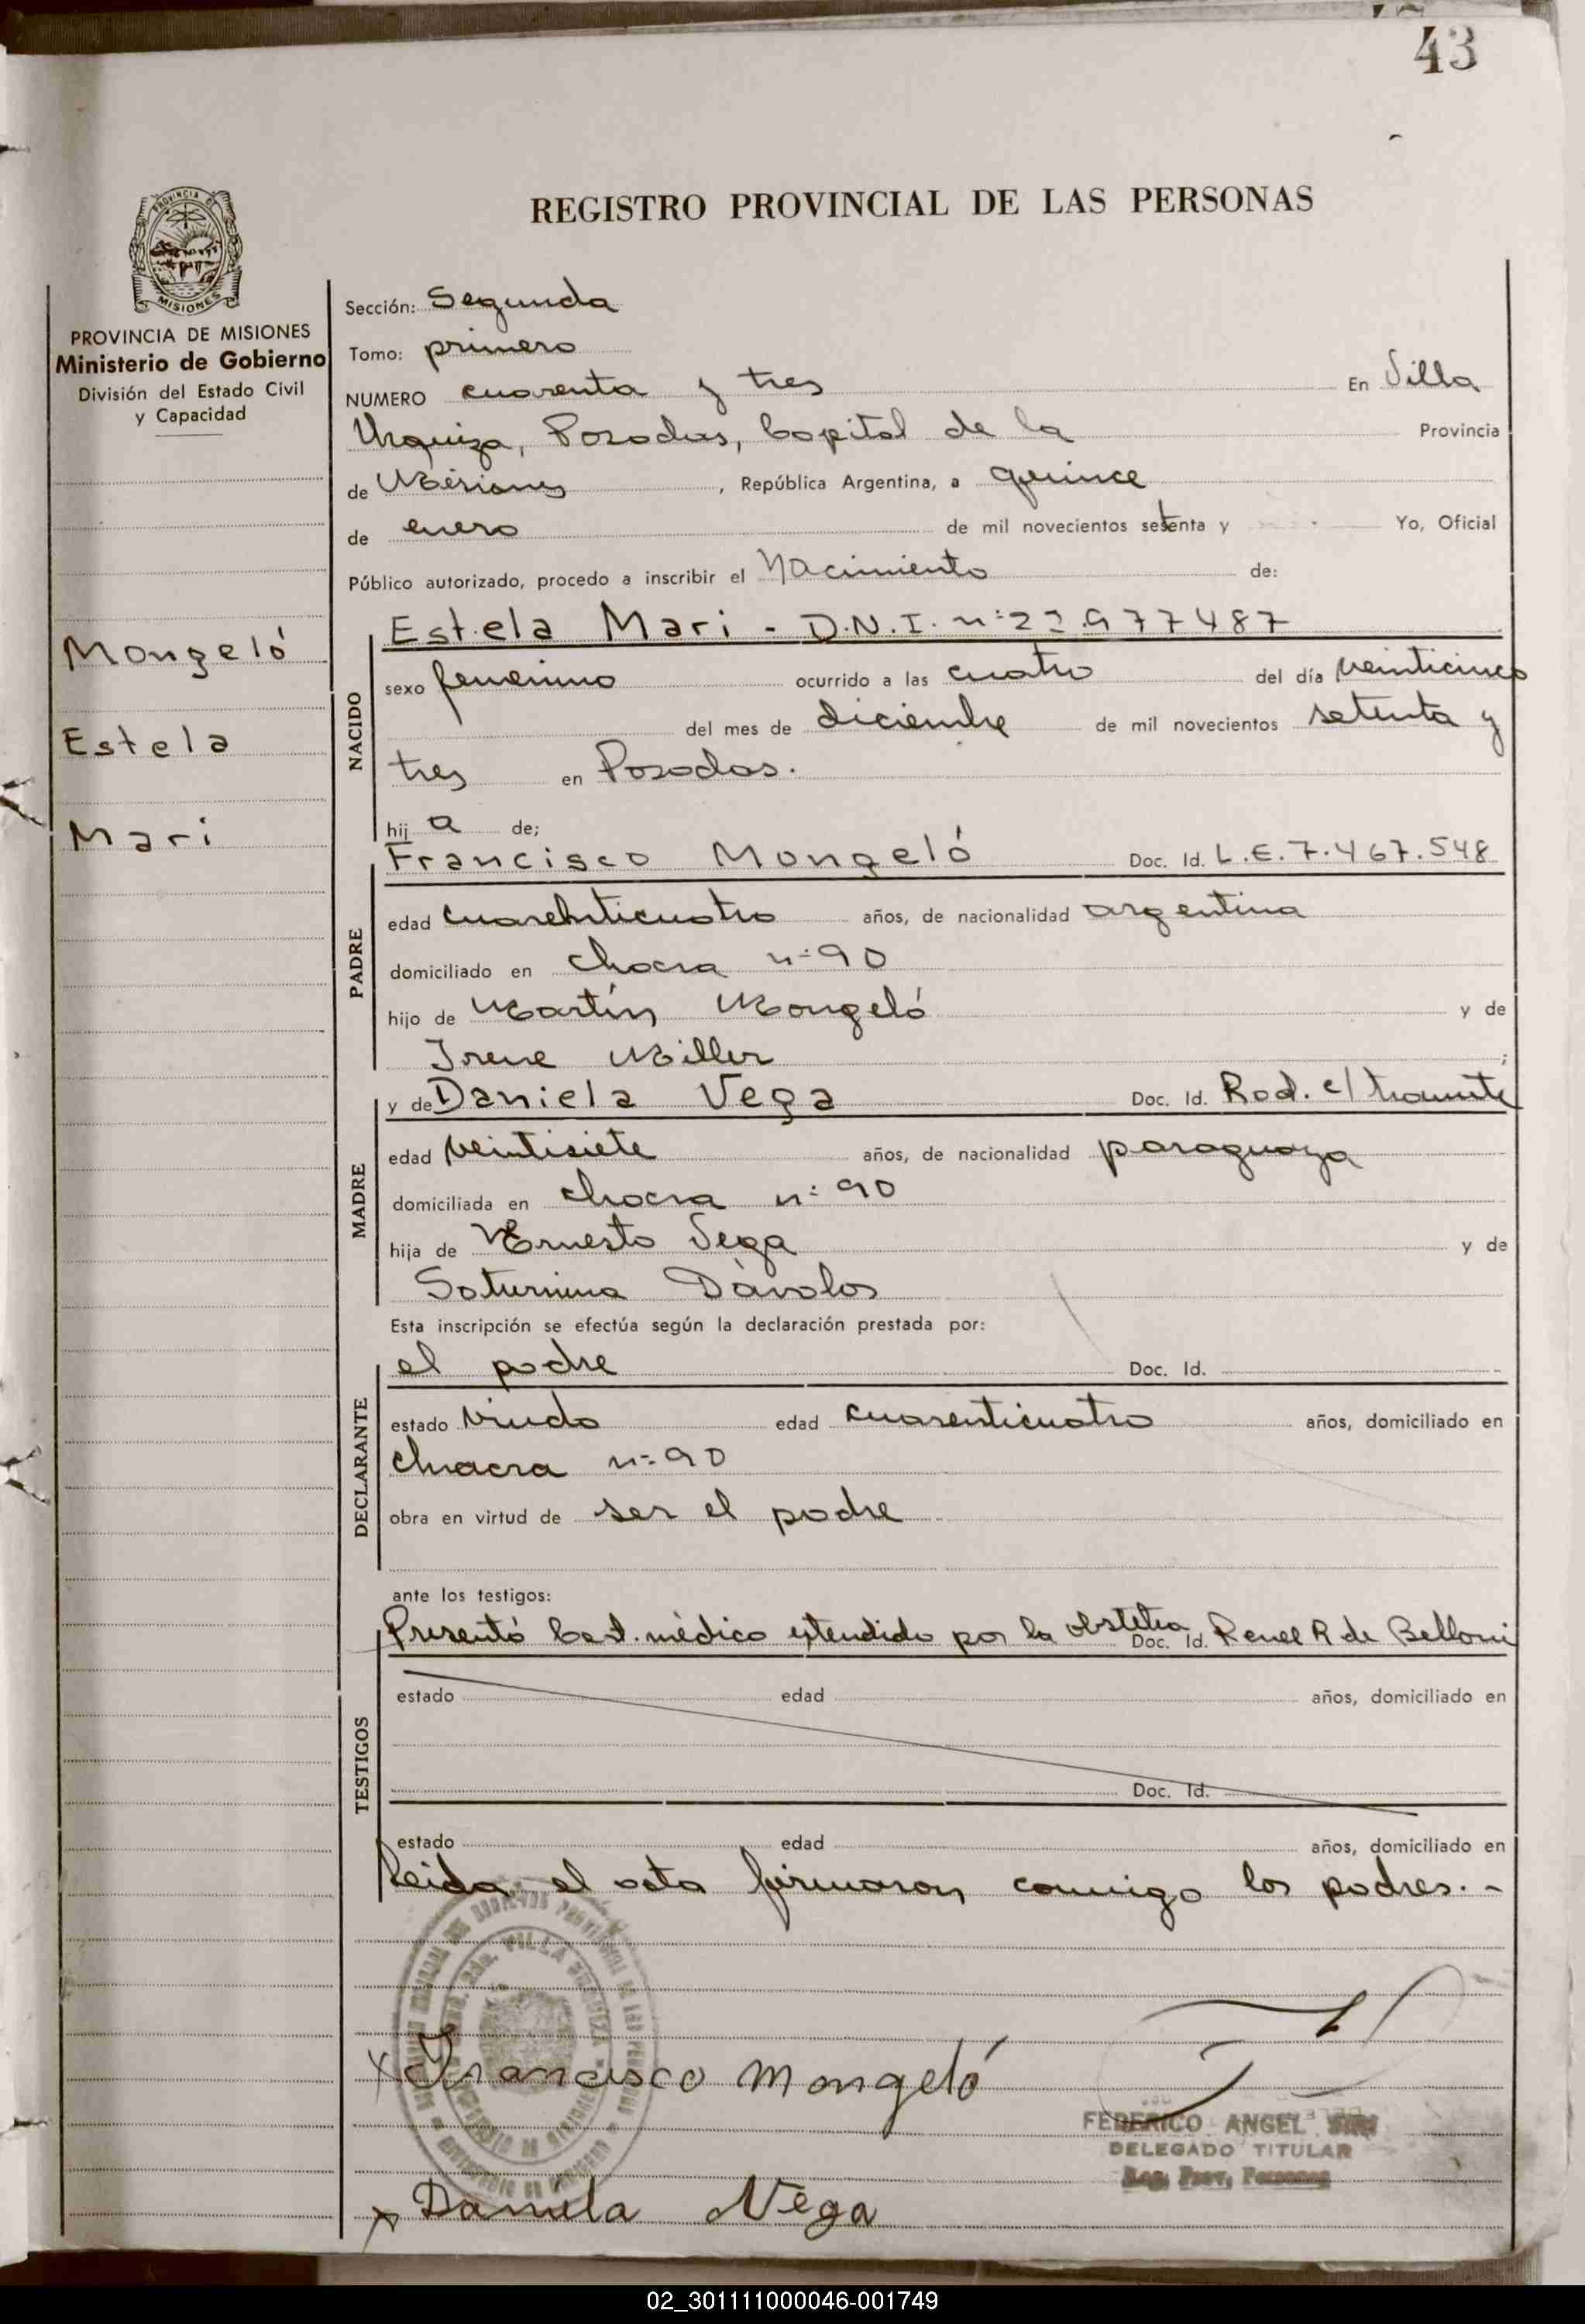 43
PROVINCIA DE
MISIONES
REGISTRO PROVINCIAL DE LAS PERSONAS
PROVINCIA DE MISIONES
Ministerio de Gobierno
División del Estado Civil
y Capacidad
Mongeló
Estela
Mari
Sección: Segunda
Tomo: primero
NUMERO cuarenta y tres En Villa
Urquiza, Posadas, Capital de la Provincia
de Misiones, República Argentina, a quince
de enero de mil novecientos setenta y Yo, Oficial
Público autorizado, procedo a inscribir el Nacimiento de:
Estela Mari - D.N.I. nº
NACIDO
sexo femenino ocurrido a las cuatro del día veinticinco
del mes de diciembre de mil novecientos setenta y
tres en Posadas.
hij a de;
Francisco Mongeló Doc. Id. L.E. 7.467.548
PADRE
edad años, de nacionalidad argentina
domiciliado en chacra nº 90
hijo de Martín Mongeló y de
Irene Miller;
y de Daniela Vega Doc. Id. Rad. c/ tramite
MADRE
edad veintisiete años, de nacionalidad paraguaya
domiciliada en chacra nº 90
hija de Ernesto Vega y de
Saturnina Dávalos
Esta inscripción se efectúa según la declaración prestada por:
el padre Doc. Id.
DECLARANTE
estado viudo edad cuarenticuatro años, domiciliado en
chacra nº 90
obra en virtud de ser el padre
ante los testigos:
Presentó Cert. médico extendido por la obstetra, Doc. Id. R de Belloni
TESTIGOS
estado edad años, domiciliado en
Doc. Id.
estado edad años, domiciliado en
Leida el acta firmaron conmigo los padres.-
x Francisco Mongeló
FEDERICO ANGEL
DELEGADO TITULAR
Reg. Prov. Personas
x Daniela Vega
02_301111000046-001749